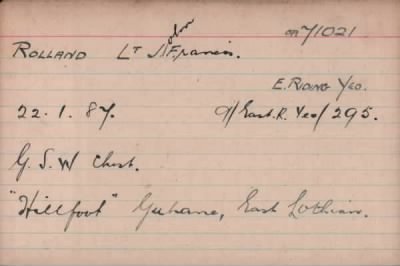 on 71021
ROLLAND Lt John Francis.
E. RIDING YEO.
22.1.87. 9/East.R.Yeo/295.
G.S.W Chest.
"Hillfoot" Gulane, East Lothian.